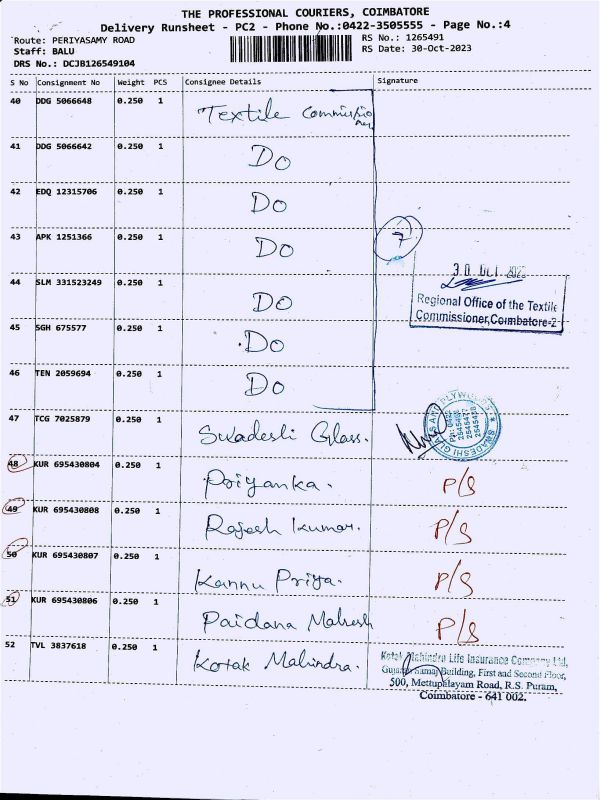 THE PROFESSIONAL COURIERS, COIMBATORE
Delivery Runsheet - PC2 - Phone No.:0422-3505555 - Page No.:4
Route: PERIYASAMY ROAD
RS No.: 1265491
Staff: BALU
RS Date: 30-Oct-2023
DRS No.: DCJB126549104
S No Consignment No Weight PCS Consignee Details Signature
40 DDG 5066648 0.250 1 Textile Commissioner
41 DDG 5066642 0.250 1 Do
42 EDQ 12315706 0.250 1 Do
43 APK 1251366 0.250 1 Do
7
44 SLM 331523249 0.250 1 Do
30 OCT 2023
Regional Office of the Textile
Commissioner, Coimbatore-2
45 SGH 675577 0.250 1 Do
46 TEN 2059694 0.250 1 Do
47 TCG 7025879 0.250 1 Swadeshi Glass.
48 KUR 695430804 0.250 1 Priyanka. P/S
49 KUR 695430808 0.250 1 Rajesh Kumar. P/S
50 KUR 695430807 0.250 1 Kannu Priya. P/S
51 KUR 695430806 0.250 1 Paidana Mahesh P/S
52 TVL 3837618 0.250 1 Kotak Mahindra.
Kotak Mahindra Life Insurance Company Ltd,
Building, First and Second Floor,
500, Mettupalayam Road, R.S. Puram,
Coimbatore - 641 002.